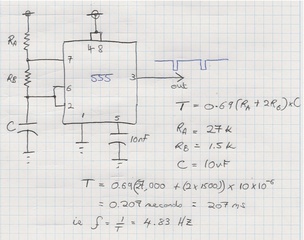 4 8
R_A
7
R_B
555
3
6
out
2
C
1
5
10nF
T = 0.69(R_A + 2R_B) × C
R_A = 27k
R_B = 1.5k
C = 10uF
T = 0.69(27,000 + (2×1500)) × 10×10⁻⁶
= 0.207 seconds = 207 ms
ie f = 1/T = 4.83 Hz